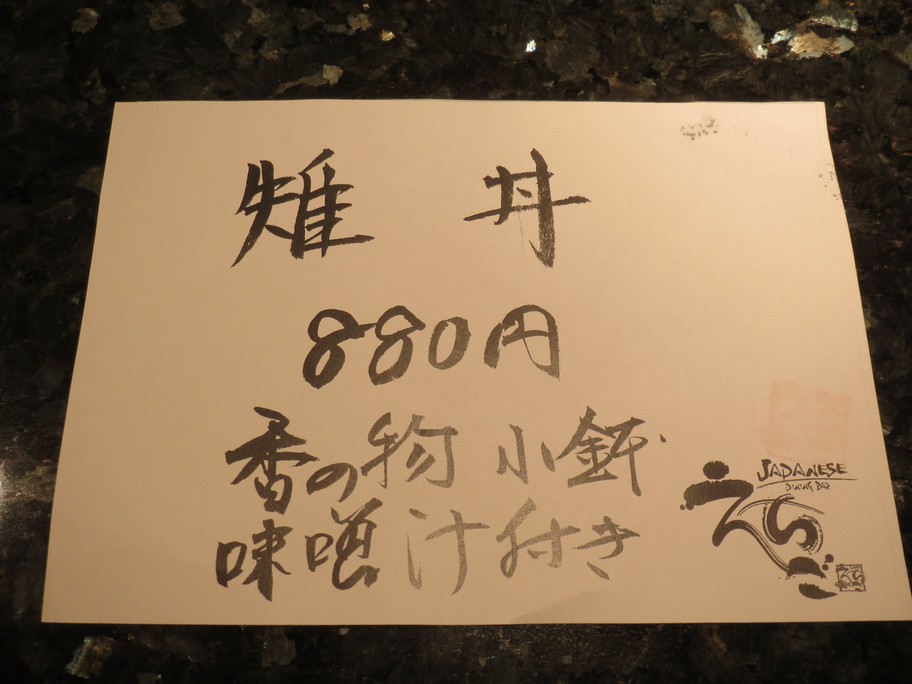 雉 丼
880円
香の物 小鉢
味噌汁付き
JAPANESE
DINING BAR
えちご